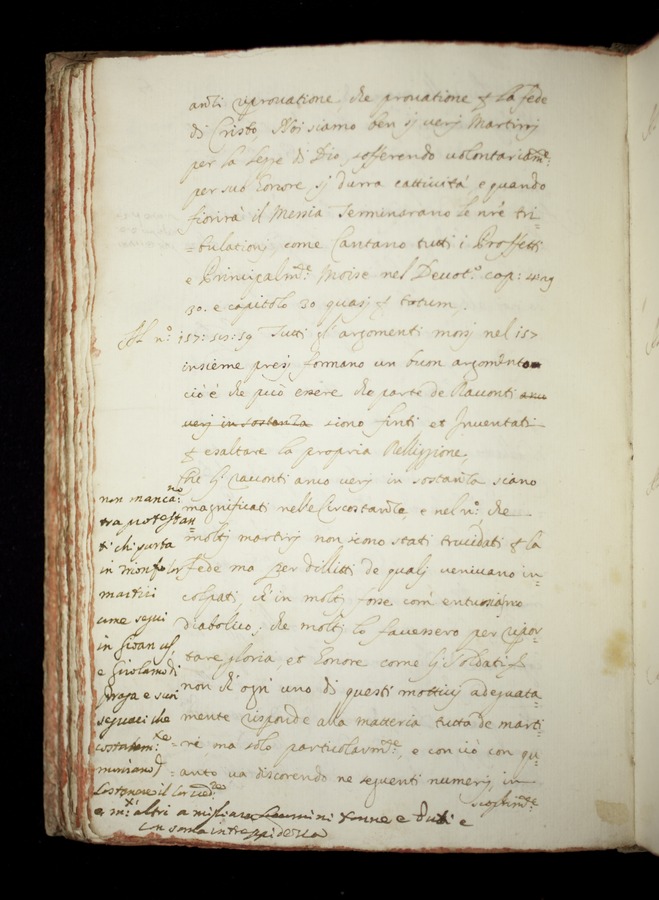 riprovatione, che provatione & la fede
di Cristo, Noi siamo ben sj verj Martirij
per la Legge di Dio, sofferendo volontariam.te
per suo Honore, sj durra cattività e quando
fiorirà il Messia Terminarano le nr̃e tri=
=bulationj, come Cantano tutti i Proffetti
e Principalm.te Moise nel Deuot.o cap:
30. e capitolo 30 quasj & totum,
Al n.o 157: 158: 59 Tutti gl'argomenti mossj nel 157
insieme presj formano un buon argomento
ciò è che può essere che parte de Raconti
verj in sostanza siono finti et Inventati
& esaltare la propria Relligione
che gl'raconti anco verj in sostanza siano
magnificati nelle Circostanze, e nel n.o che
molti martirij non siono stati trucidati & la
fede ma per dillitti de qualj venivano in=
colpati, ch'in moltj fosse com' entusiasmo
diabolico, che moltj lo facessero per ripor=
tare gloria, et Honore come gl'Soldati &
non ch'ogn'uno di questi mottivj adequata=
mente risponde alla matteria tutta de marti=
=rij ma solo particolarm.te, e con ciò con qu=
=anto va discorendo ne seguenti numerj, in
non manca:no
tra protestan=
ti chi porta
in trionfo lor
martiri
come segui
in Gioan Us,
e Girolamo di
Praga e suoi
seguaci che
sostenere il lor
e m.i altri a migliara huomini donne e
con soma intreppidezza